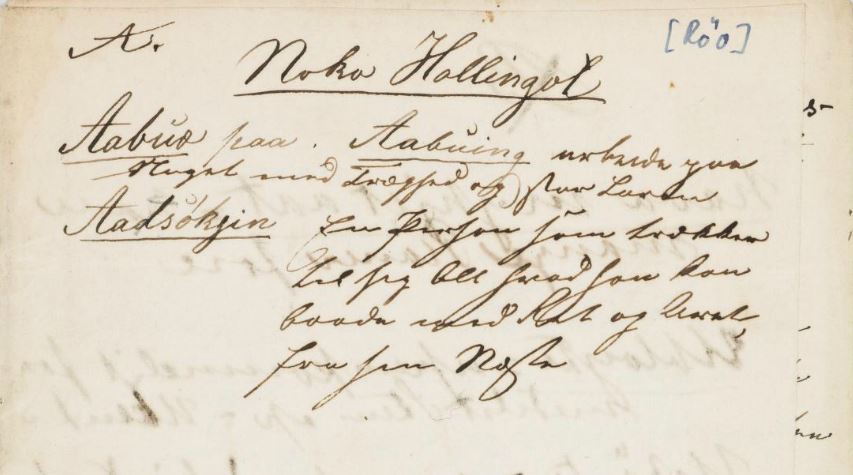 A.
[Röo]
Noko Hallingol
Aabuæ paa. Aabuing arbeide paa
Noget med Træghed og stor Larm
Aadsökjin En Person som trækker
til sig Alt hvad han kan
baade med Ret og Uret,
fra sin Næste